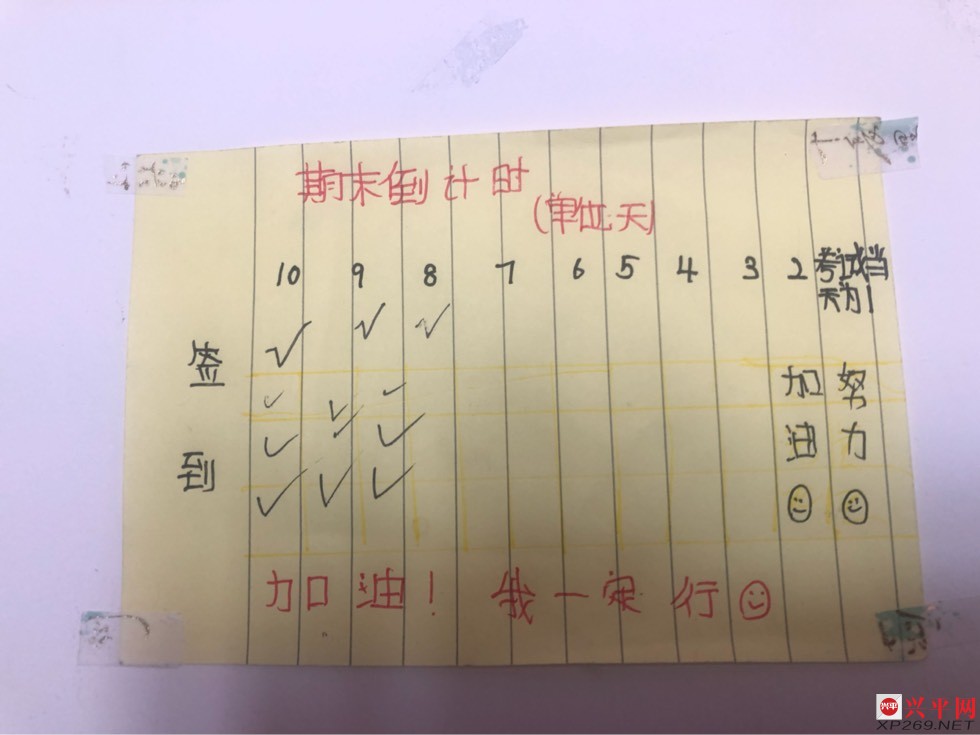 期末倒计时
(单位:天)
10 9 8 7 6 5 4 3 2 考试当
天为1
签到
加油
努力
加油！ 我一定行
兴平 兴平网
XP269.NET